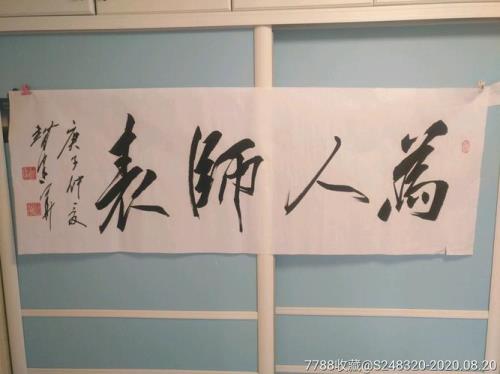 為人師表
庚子仲夏
7788收藏@S248320-2020.08.20